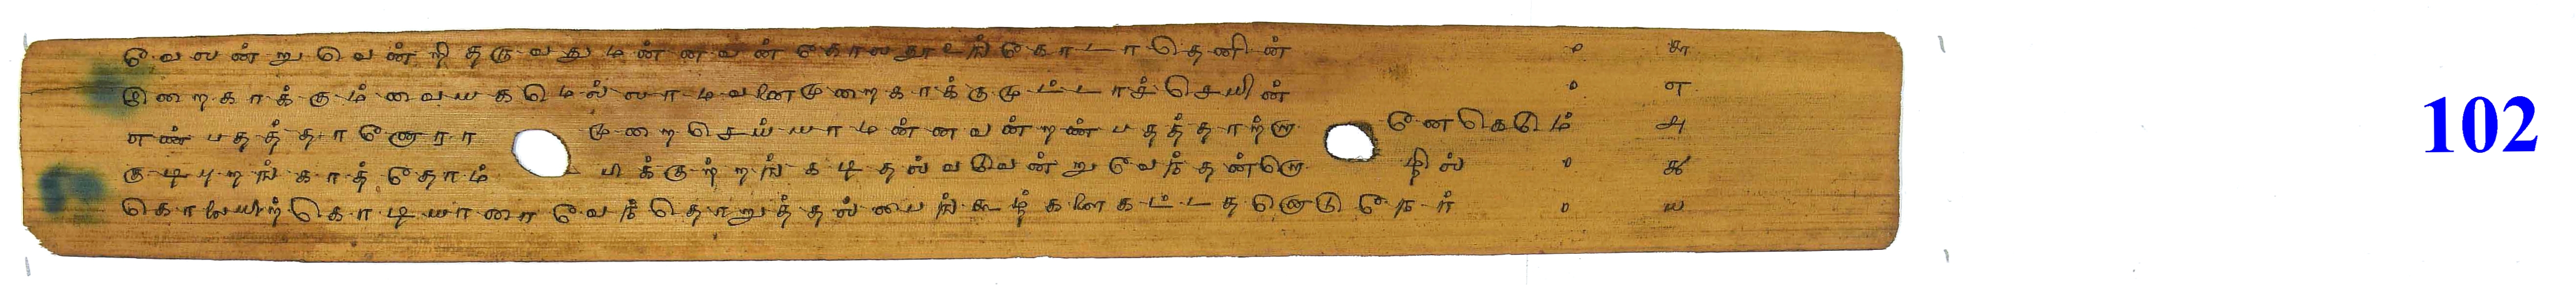 வேலன்று வென்றி தருவது மன்னவன் கோலதூஉங் கோடா தெனின் ௦ ௬
இறைகாக்கும் வையகமெல்லாமவனைமுறைகாக்குமுட்டாச்செயின் ௦ ௭
எண்பதத்தானோரா முறைசெய்யாமன்னவன்றண்பதத்தாற்றானேகெடும் ௮
குடிபுறங்காத்தோம்பிக்குற்றங்கடிதல்வடுவென்றுவேந்தன்றொழில் ௦ ௯
கொலையிற்கொடியாரைவேந்தொறுத்தல்பைங்கூழ்களைகட்டதனொடுநேர் ௦ ௰
102